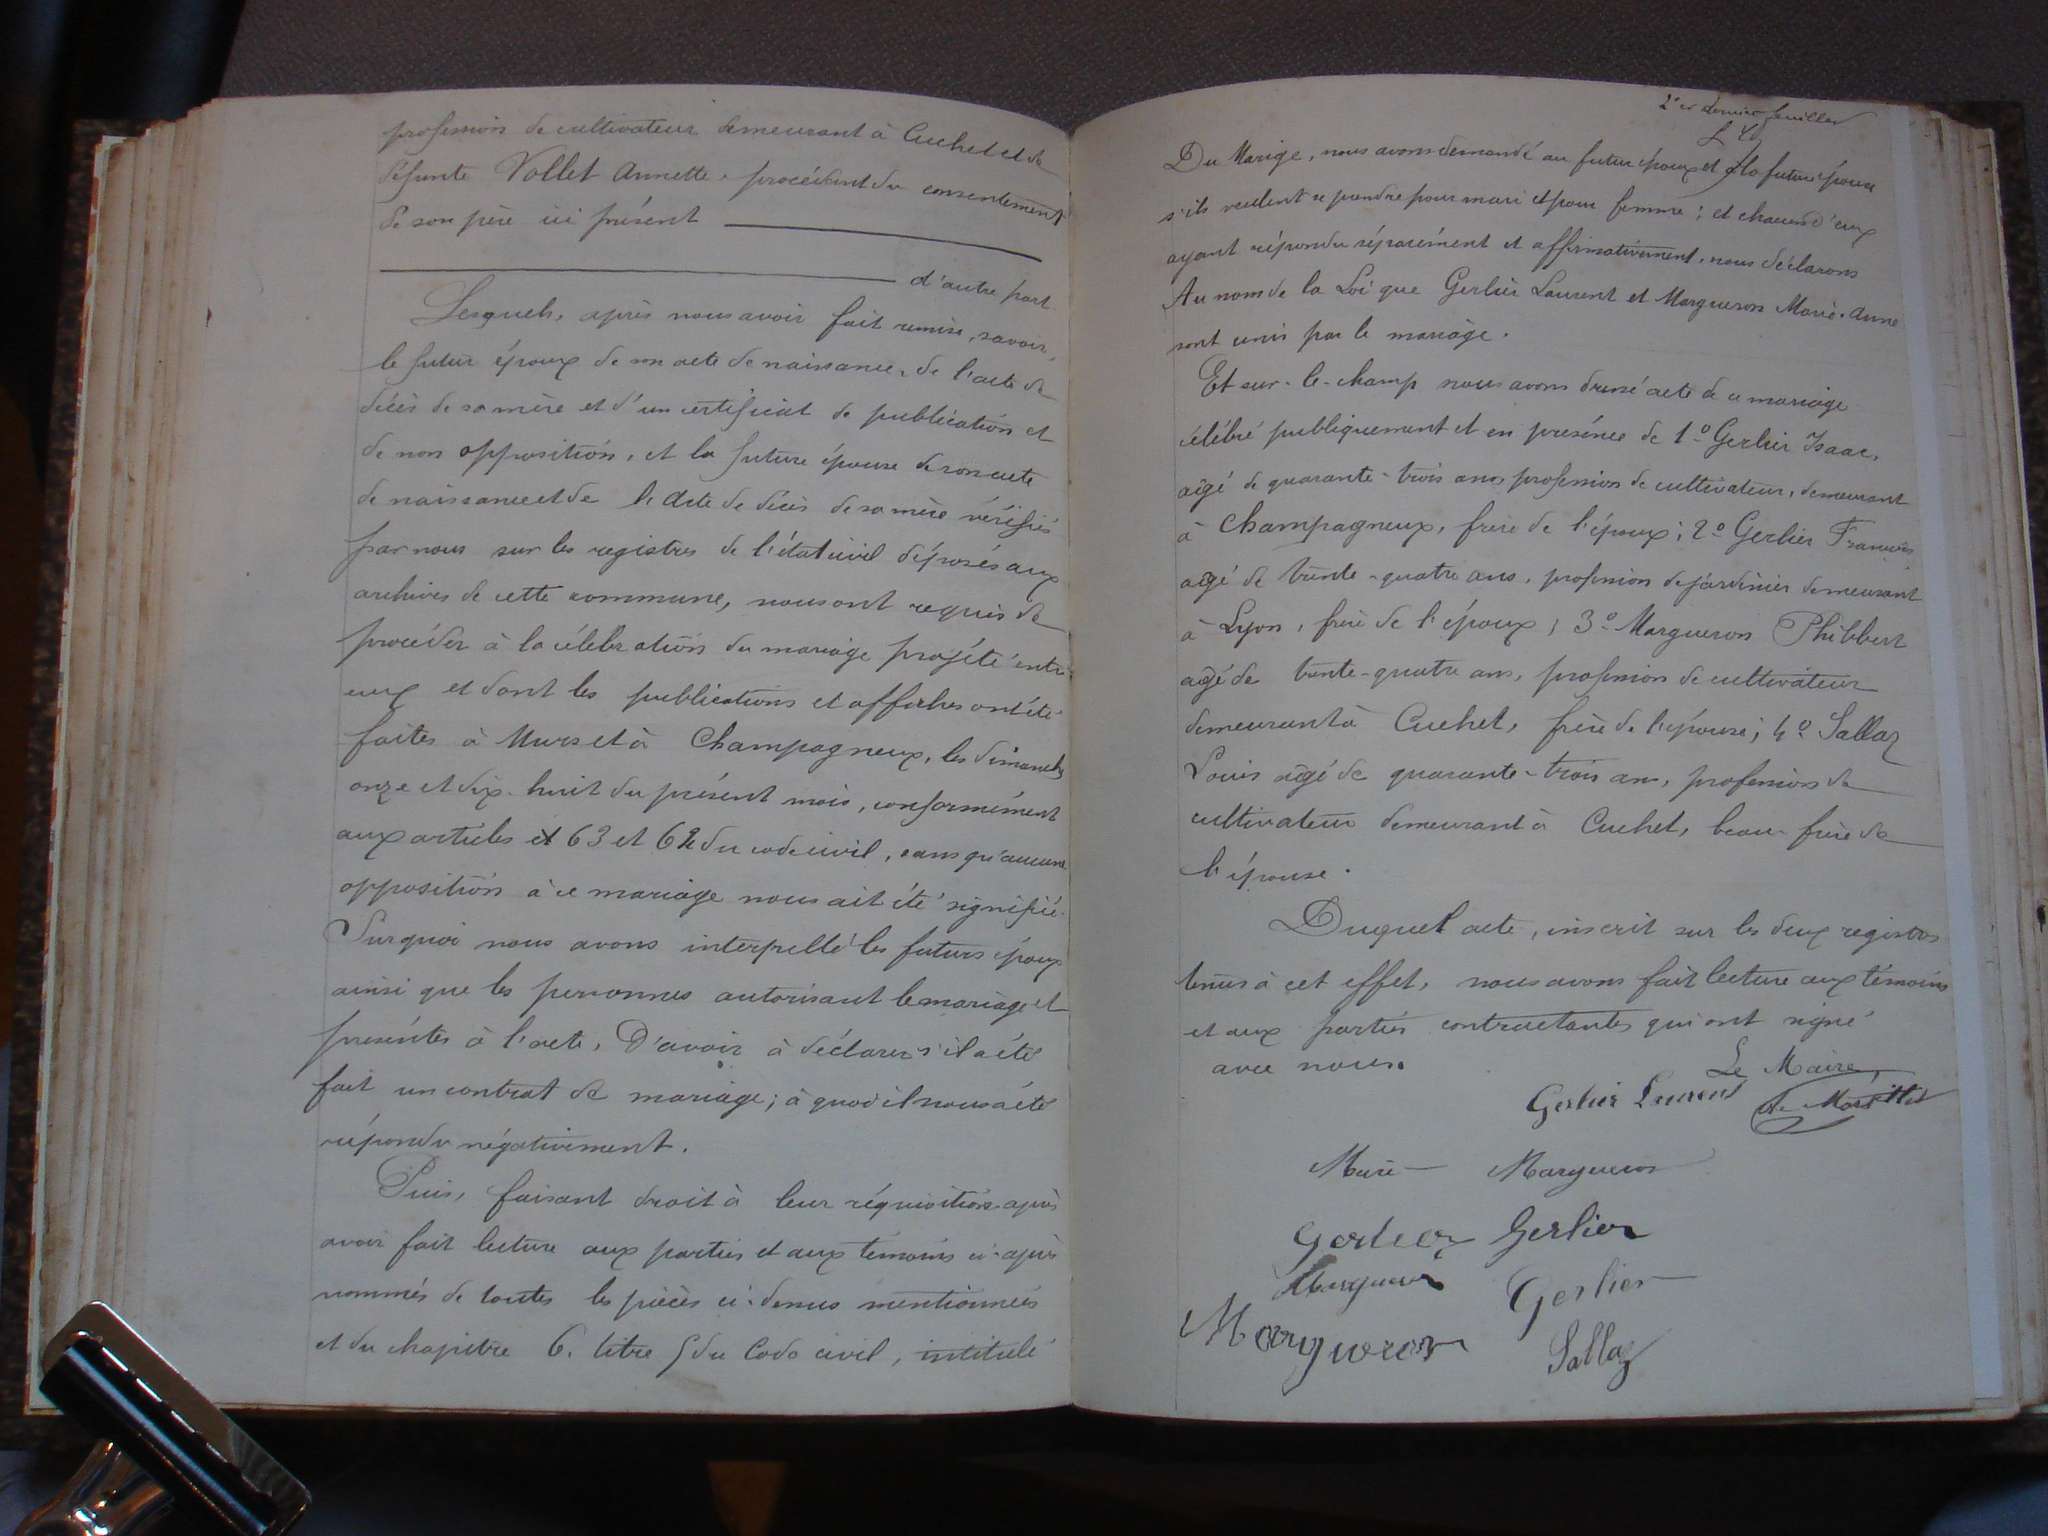 profession de cultivateur demeurant à Cuchet et de
défunte Vollet Annette. procédant du consentement
de son père ici présent
d'autre part.
Lesquels, après nous avoir fait remise, savoir,
le futur époux de son acte de naissance, de l'acte de
décès de sa mère et d'un certificat de publication et
de non opposition, et la future épouse de son acte
de naissance et de l'acte de décès de sa mère vérifiés
par nous sur les registres de l'état civil déposés aux
archives de cette commune, nous ont requis de
procéder à la célébration du mariage projété entre
eux et dont les publications et affiches ont été
faites à Murs et à Champagneux, les dimanches
onze et dix-huit du présent mois, conformément
aux articles et 63 et 64 du code civil, sans qu'aucune
opposition à ce mariage nous ait été signifié.
Sur quoi nous avons interpellé les futurs époux
ainsi que les personnes autorisant le mariage et
présentes à l'acte, D'avoir à déclarer s'il a été
fait un contrat de mariage; à quoi il nous a été
répondu négativement.
Puis, faisant droit à leur réquisition après
avoir fait lecture aux parties et aux témoins ci-après
nommés de toutes les pièces ci-dessus mentionnées
et du chapitre 6. titre 5 du Code civil, intitulé
2e et dernier feuillet
Du Mariage, nous avons demandé au futur époux et à la future épouse
s'ils veulent se prendre pour mari et pour femme; et chacun d'eux
ayant répondu séparément et affirmativement, nous déclarons
Au nom de la Loi que Gerlier Laurent et Margueron Marie-Anne
sont unis par le mariage.
Et sur-le-champ nous avons dressé acte de ce mariage
célébré publiquement et en présence de 1º Gerlier Isaac,
agé de quarante-trois ans profession de cultivateur, demeurant
à Champagneux, frère de l'époux; 2º Gerlier François
agé de trente-quatre ans, profession de jardinier demeurant
à Lyon, frère de l'époux; 3º Margueron Philibert
agé de trente-quatre ans, profession de cultivateur
demeurant à Cuchet, frère de l'épouse; 4º Sallaz
Louis agé de quarante-trois ans, profession de
cultivateur demeurant à Cuchet, beau-frère de
l'épouse.
Duquel acte, inscrit sur les deux registres
tenus à cet effet, nous avons fait lecture aux témoins
et aux parties contractantes qui ont signé
avec nous.
Le Maire,
Gerlier Laurent
Marie Margueron
Gerlier Gerlier
Margueron Gerlier
Margueron Sallaz